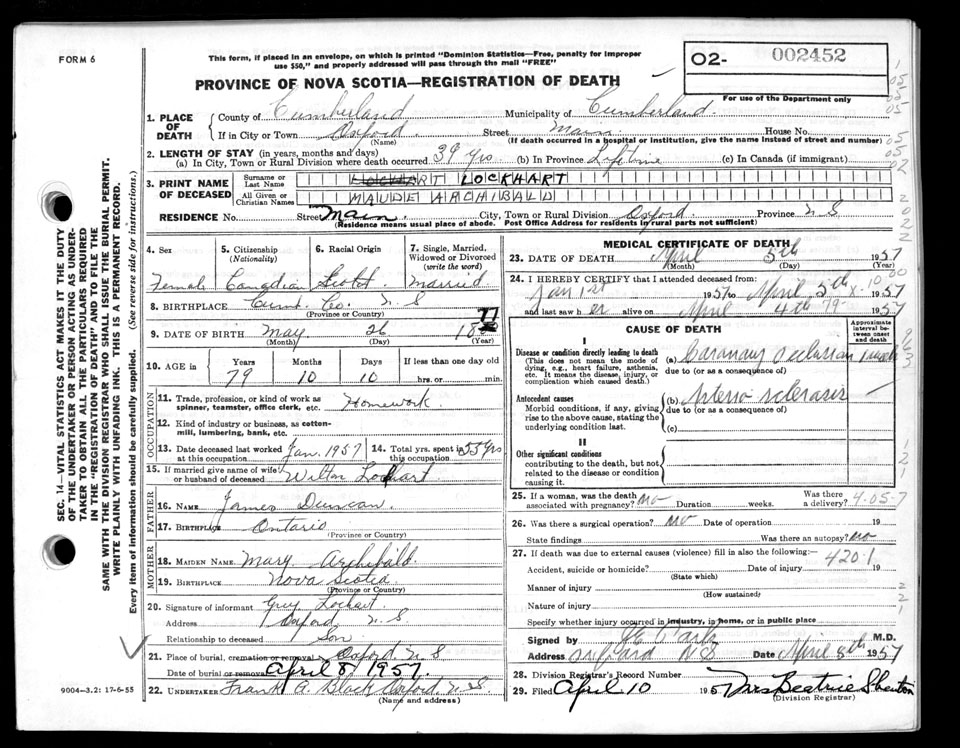 FORM 6
This form, if placed in an envelope, on which is printed "Dominion Statistics—Free, penalty for improper
use $50," and properly addressed will pass through the mail "FREE"
PROVINCE OF NOVA SCOTIA—REGISTRATION OF DEATH
O2- 002452
For use of the Department only
1. PLACE OF DEATH County of Cumberland Municipality of Cumberland.
If in City or Town Oxford. (Name) Street Main House No.
(If death occurred in a hospital or institution, give the name instead of street and number)
2. LENGTH OF STAY (in years, months and days)
(a) In City, Town or Rural Division where death occurred 39 yrs (b) In Province Lifetime (c) In Canada (if immigrant)
3. PRINT NAME OF DECEASED Surname or Last Name LOCKHART LOCKHART
All Given or Christian Names MAUDE ARCHIBALD
RESIDENCE No. Street Main. City, Town or Rural Division Oxford. Province N S
(Residence means usual place of abode. Post Office Address for residents in rural parts not sufficient)
4. Sex Female
5. Citizenship (Nationality) Canadian
6. Racial Origin Scotch
7. Single, Married, Widowed or Divorced (write the word) Married
8. BIRTHPLACE Cumb. Co. N S
(Province or Country)
9. DATE OF BIRTH May 26 1877
(Month) (Day) (Year)
10. AGE in Years 79 Months 10 Days 10 If less than one day old hrs. or min.
OCCUPATION
11. Trade, profession, or kind of work as spinner, teamster, office clerk, etc. Homework.
12. Kind of industry or business, as cotton-mill, lumbering, bank, etc.
13. Date deceased last worked at this occupation Jan. 1957 14. Total yrs. spent in this occupation 55 yrs
15. If married give name of wife or husband of deceased Wilton Lockhart
FATHER
16. NAME James Duncan.
17. BIRTHPLACE Ontario
(Province or Country)
MOTHER
18. MAIDEN NAME Mary Archibald.
19. BIRTHPLACE Nova Scotia
(Province or Country)
20. Signature of informant Guy Lockhart.
Address Oxford N S
Relationship to deceased Son
21. Place of burial, cremation or removal Oxford N S
Date of burial or removal April 8, 1957.
22. UNDERTAKER Frank A. Black Oxford N S
(Name and address)
9004—3.2: 17-6-55
MEDICAL CERTIFICATE OF DEATH
23. DATE OF DEATH April 5th 1957
(Month) (Day) (Year)
24. I HEREBY CERTIFY that I attended deceased from:
Jan 1st 1957 to April 5th 1957
and last saw her alive on April 4th 1957
CAUSE OF DEATH
Approximate interval between onset and death
I
Disease or condition directly leading to death (a) Coronary Occlusion 1 week
(This does not mean the mode of dying, e.g., heart failure, asthenia, etc. It means the disease, injury, or complication which caused death.)
due to (or as a consequence of)
Antecedent causes (b) Arterio sclerosis
Morbid conditions, if any, giving rise to the above cause, stating the underlying condition last.
due to (or as a consequence of)
(c)
II
Other significant conditions
contributing to the death, but not related to the disease or condition causing it.
25. If a woman, was the death associated with pregnancy? no Duration weeks. Was there a delivery? 4.05-7
26. Was there a surgical operation? no Date of operation 19
State findings Was there an autopsy? no
27. If death was due to external causes (violence) fill in also the following:— 420.1
Accident, suicide or homicide? Date of injury 19
(State which)
Manner of injury
(How sustained)
Nature of injury
Specify whether injury occurred in industry, in home, or in public place
Signed by M.D.
Address N S Date April 5th 1957
28. Division Registrar's Record Number
29. Filed April 10 1957 Mrs Beatrice Shenton
(Division Registrar)
SEC. 14—VITAL STATISTICS ACT MAKES IT THE DUTY
OF THE UNDERTAKER OR PERSON ACTING AS UNDER-
TAKER TO OBTAIN ALL THE PARTICULARS REQUIRED
IN THE "REGISTRATION OF DEATH" AND TO FILE THE
SAME WITH THE DIVISION REGISTRAR WHO SHALL ISSUE THE BURIAL PERMIT.
WRITE PLAINLY WITH UNFADING INK. THIS IS A PERMANENT RECORD.
Every item of information should be carefully supplied. (See reverse side for instructions.)